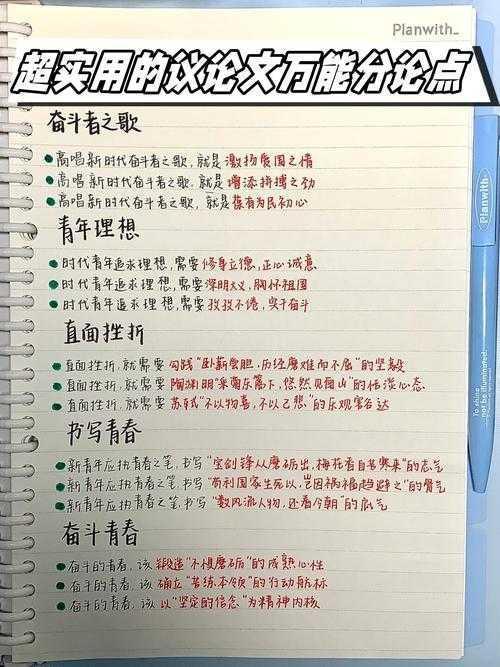 Planwith_
超实用的议论文万能分论点
奋斗者之歌
高唱新时代奋斗者之歌,就是激扬爱国之情
高唱新时代奋斗者之歌,就是增添拼搏之劲
高唱新时代奋斗者之歌,就是葆有为民初心
青年理想
时代青年追求理想,需要修身立德,正心诚意
时代青年追求理想,需要深明大义,胸怀祖国
时代青年追求理想,需要孜孜不倦,实干奋斗
直面挫折
直面挫折,就需要勾践"卧薪尝胆,历经磨难而不屈"的坚毅
直面挫折,就需要陶渊明"采菊东篱下,悠然见南山"的恬淡心态
直面挫折,就需要苏轼"不以物喜,不以己悲"的乐观豁达
书写青春
新青年应执青春之笔,书写"宝剑锋从磨砺出,梅花香自苦寒来"的志气
新青年应执青春之笔,书写"苟利国家生死以,岂因祸福趋避之"的骨气
新青年应执青春之笔,书写"数风流人物,还看今朝"的底气
奋斗青春
奋斗的青春,该锻造"不惧磨砺"的成熟心性
奋斗的青春,该确立"苦练本领"的行动航标
奋斗的青春,该以"坚定的信念"为精神内核
Planwith
To shine
not be illuminated.